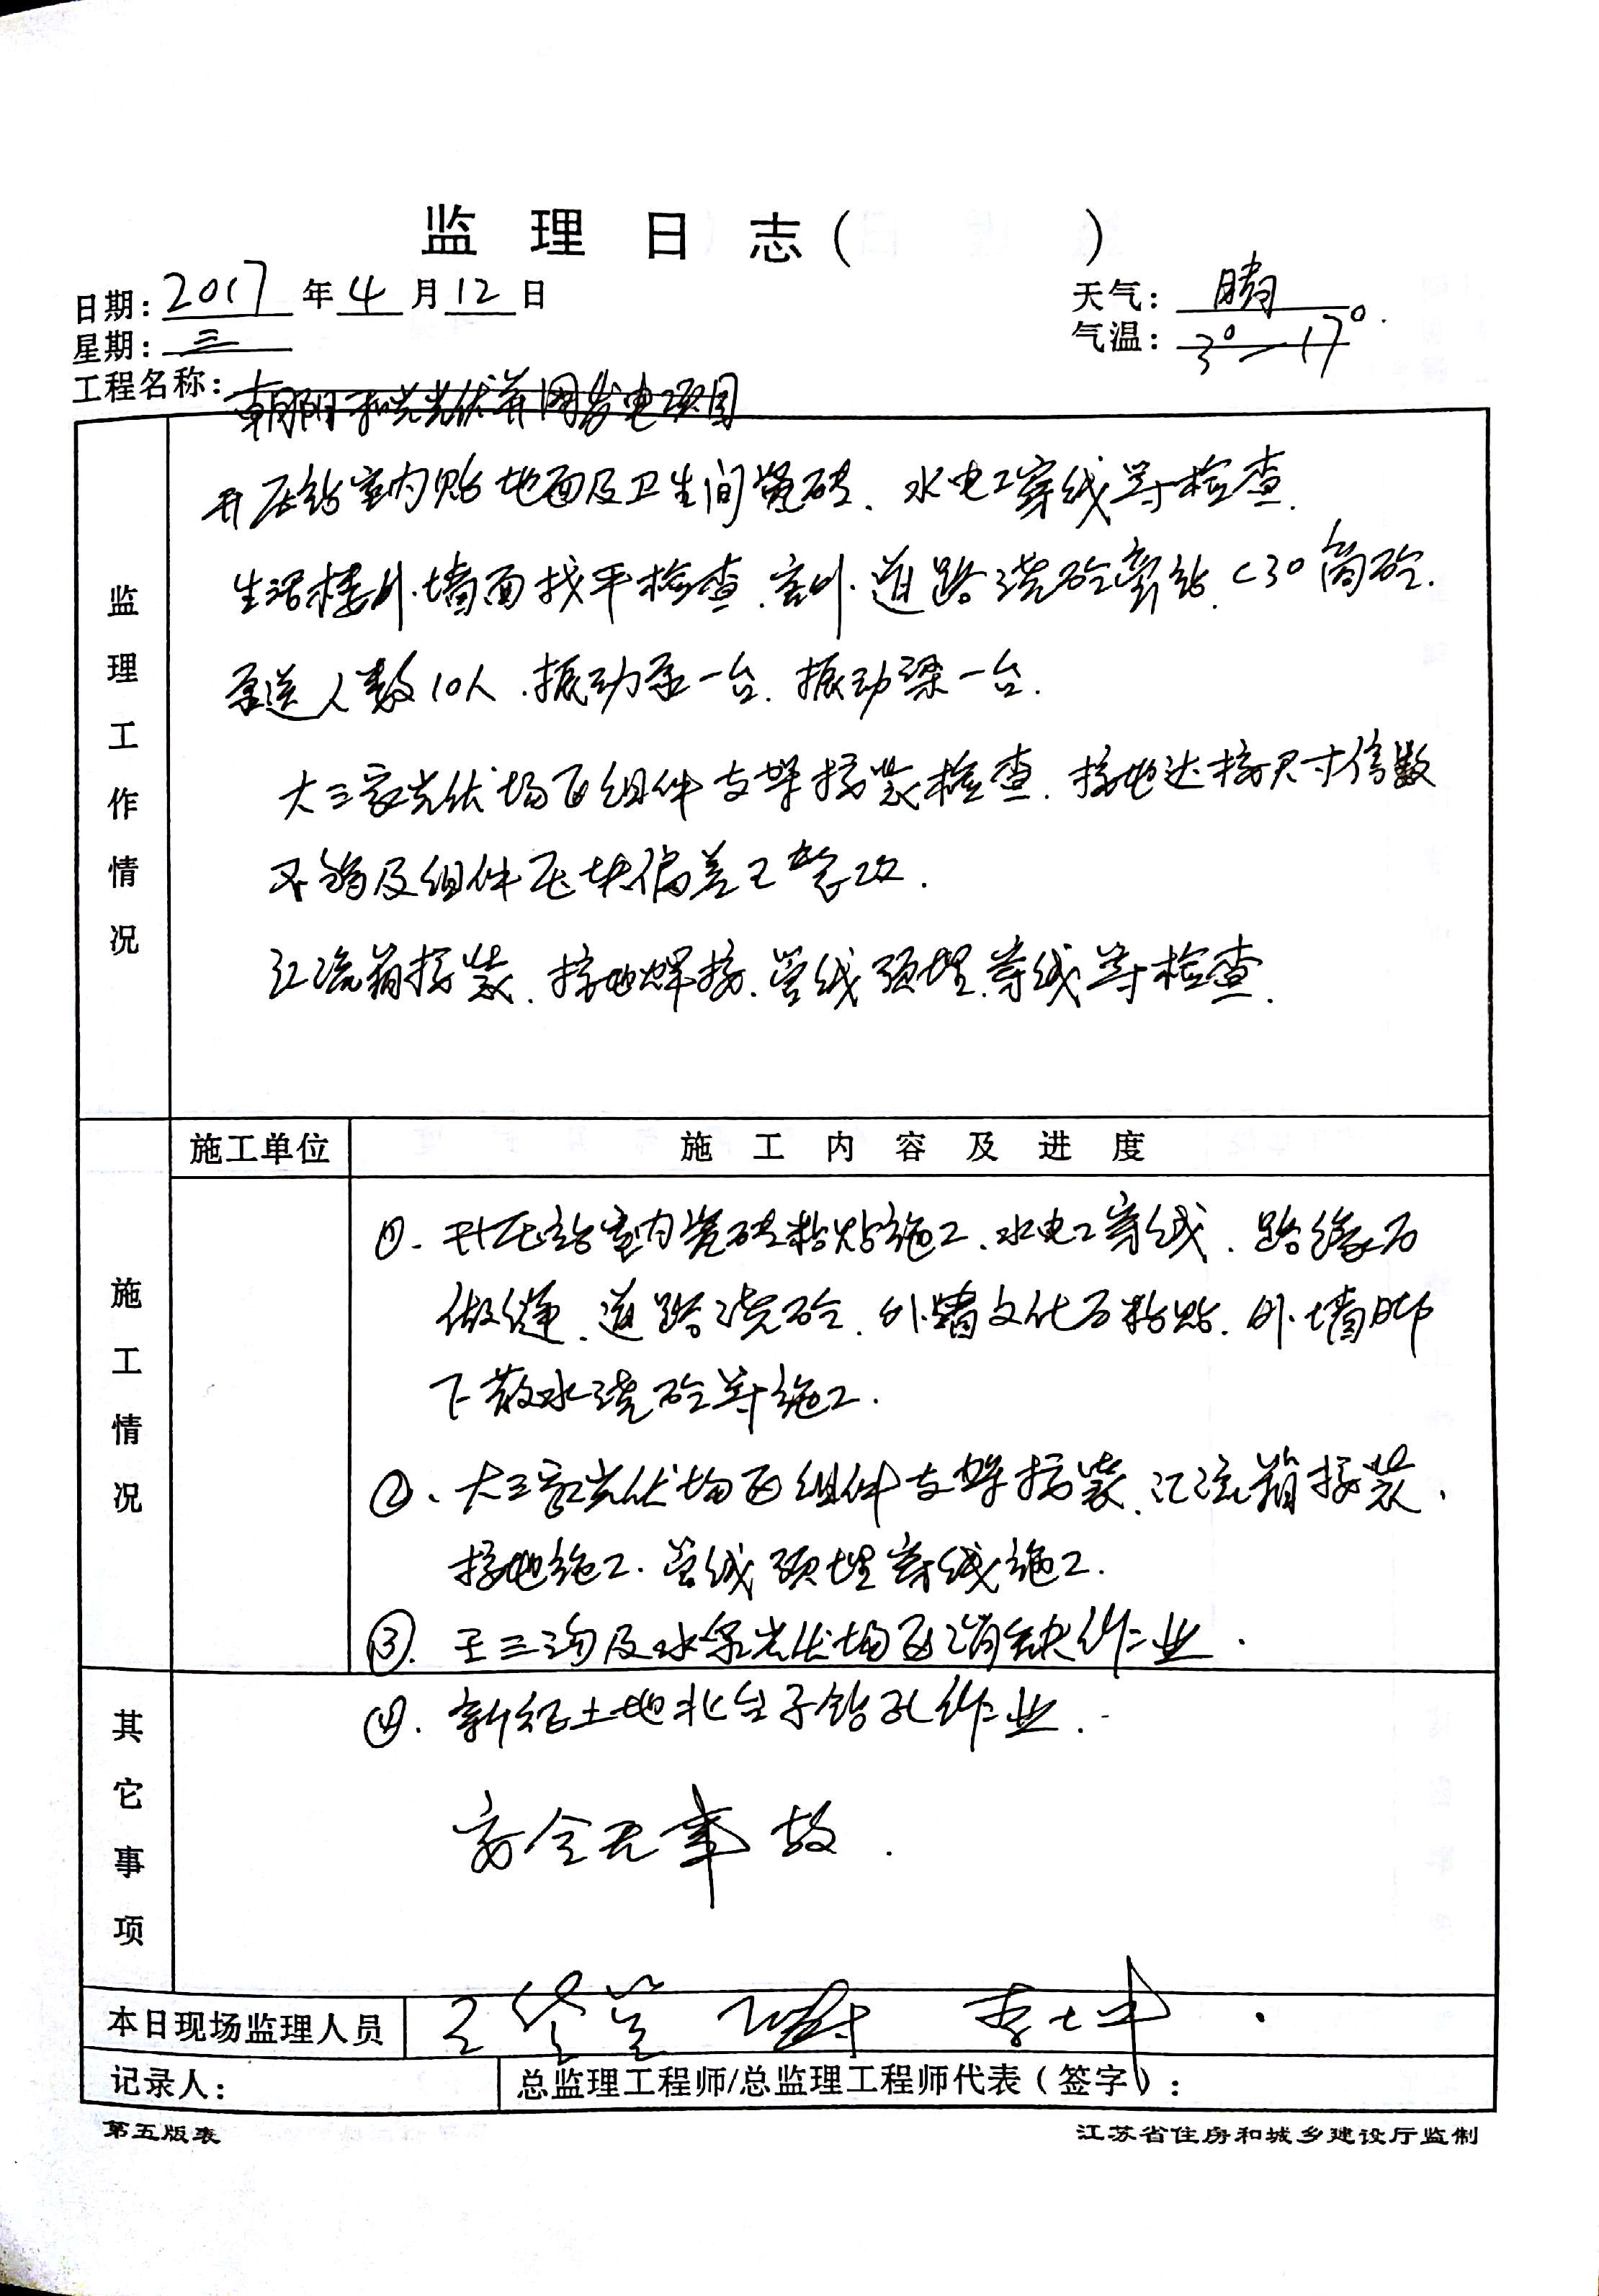 监理日志(      )
日期:2017年4月12日
天气:晴
星期:三
气温:3°—17°.
工程名称:朝阳和光光伏并网发电项目
监理工作情况
升压站室内贴地面及卫生间瓷砖、水电工穿线等检查.
生活楼外墙面找平检查.室外道路浇砼旁站.C30商砼.
泵送人数10人.振动泵一台.振动梁一台.
大三家光伏场区组件支架按装检查.接地达接尺寸倍数
不够及组件压块偏差已整改.
汇流箱按装.接地焊接.管线预埋.穿线等检查.
施工单位
施工内容及进度
施工情况
①.升压站室内瓷砖粘贴施工、水电工穿线.路缘石
做缝、道路浇砼.外墙文化石粘贴.外墙脚
下散水浇砼等施工.
②、大三家光伏场区组件支架按装、汇流箱按装、
接地施工.管线预埋穿线施工.
③.王三沟及水泉光伏场区消缺作业.
其它事项
④.新征土地北台子钻孔作业.
安全无事故.
本日现场监理人员
记录人:
总监理工程师/总监理工程师代表(签字):
第五版表
江苏省住房和城乡建设厅监制